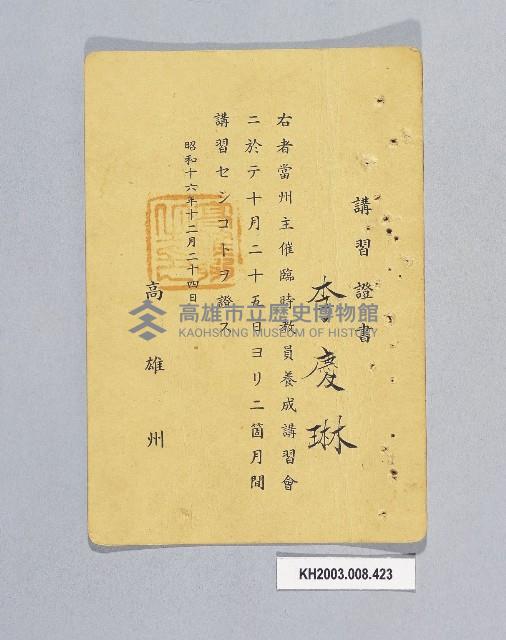 講習證書
李慶琳
右者當州主催臨時教員養成講習會
ニ於テ十月二十五日ヨリ二箇月間
講習セシコトヲ證ス
昭和十六年十二月二十四日
高雄州
高雄市立歷史博物館
KAOHSIUNG MUSEUM OF HISTORY
KH2003.008.423